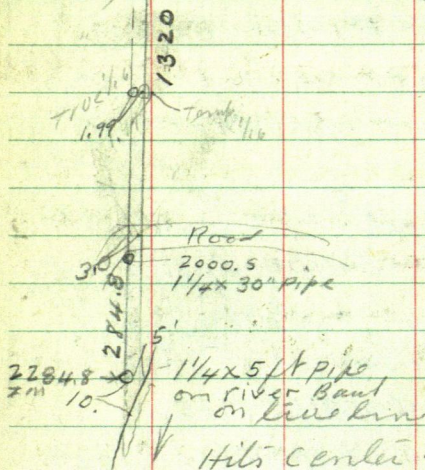 1320
TRUE 1/16
Temp 1/16
1.99
Road
3.0
2000.5
1 1/4 x 30" Pipe
284.8
5'
2284.8
1 1/4 x 5 ft pipe
on river Bank
10.
on true line
Hits Center